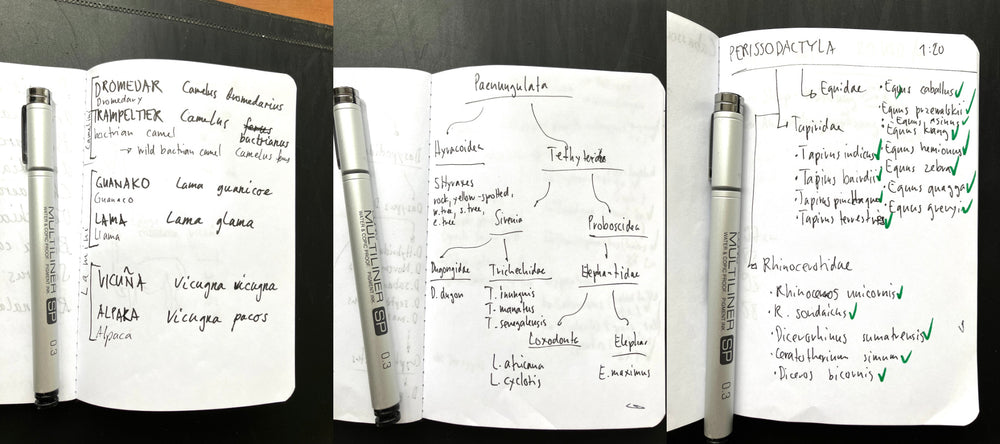 DROMEDAR Camelus Dromedarius
Dromedary
TRAMPELTIER Camelus ferus
bactrianus
bactrian camel
→ wild bactian camel Camelus ferus
GUANAKO Lama guanicoe
Guanaco
LAMA Lama glama
Llama
VICUÑA Vicugna vicugna
ALPAKA Vicugna pacos
Alpaca
Camelini
Lamini
MULTILINER SP
WATER & COPIC PROOF PIGMENT INK
0.3
Paenungulata
Hyracoidea
Tethytheria
5 Hyraxes
rock, yellow-spotted,
w.tree, s.tree,
e.tree
Sirenia
Proboscidea
Dugongidae
Trichechidae
Elephantidae
D. dugon
T. inunguis
T. manatus
T. senegalensis
Loxodonta
Elephas
L. africana
L. cyclotis
E. maximus
MULTILINER SP
WATER & COPIC PROOF PIGMENT INK
0.3
PERISSODACTYLA 1:20
Equidae
• Equus caballus
• Equus przewalskii
• Equus asinus
• Equus kiang
• Equus hemionus
• Equus zebra
• Equus quagga
• Equus grevyi
Tapiridae
• Tapirus indicus
• Tapirus bairdii
• Tapirus pinchaque
• Tapirus terestris
Rhinocerotidae
• Rhinoceros unicornis
• R. sondaicus
• Dicerorhinus sumatrensis
• Ceratotherium simum
• Diceros bicornis
MULTILINER SP
WATER & COPIC PROOF PIGMENT INK
0.3